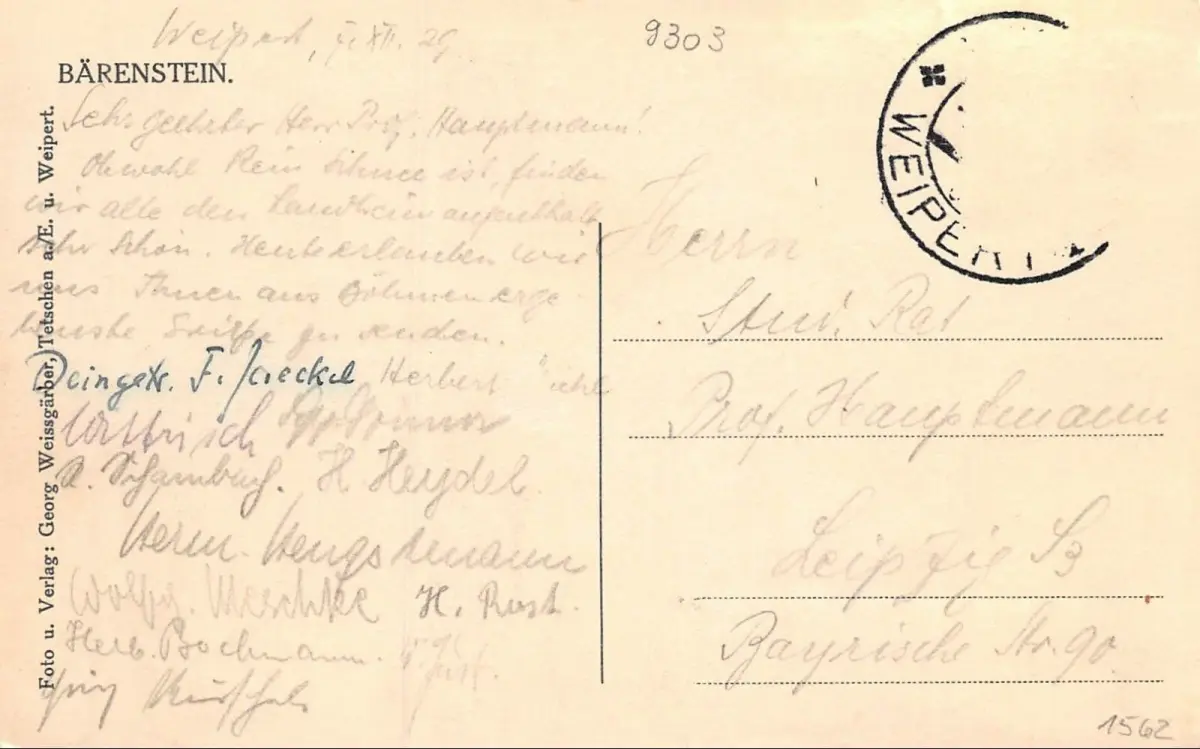 Weipert, XII. 29.
9303
BÄRENSTEIN.
Sehr geehrter Herr Prof. Hauptmann!
Obwohl kein Schnee ist, finden
wir alle den Landheimaufenthalt
sehr schön. Heute erlauben wir
uns Ihnen aus Böhmen erge-
benste Grüße zu senden.
F. Jaeckel Herbert
H. Heydel
Herm. Hengstmann
Wolfg. Meschke H. Rost.
Herb. Bochmann.
Foto u. Verlag: Georg Weissgärber, Tetschen a./E. u. Weipert.
WEIPERT
Herrn
Stud. Rat
Prof. Hauptmann
Leipzig S3
Bayrische Str. 90
1562